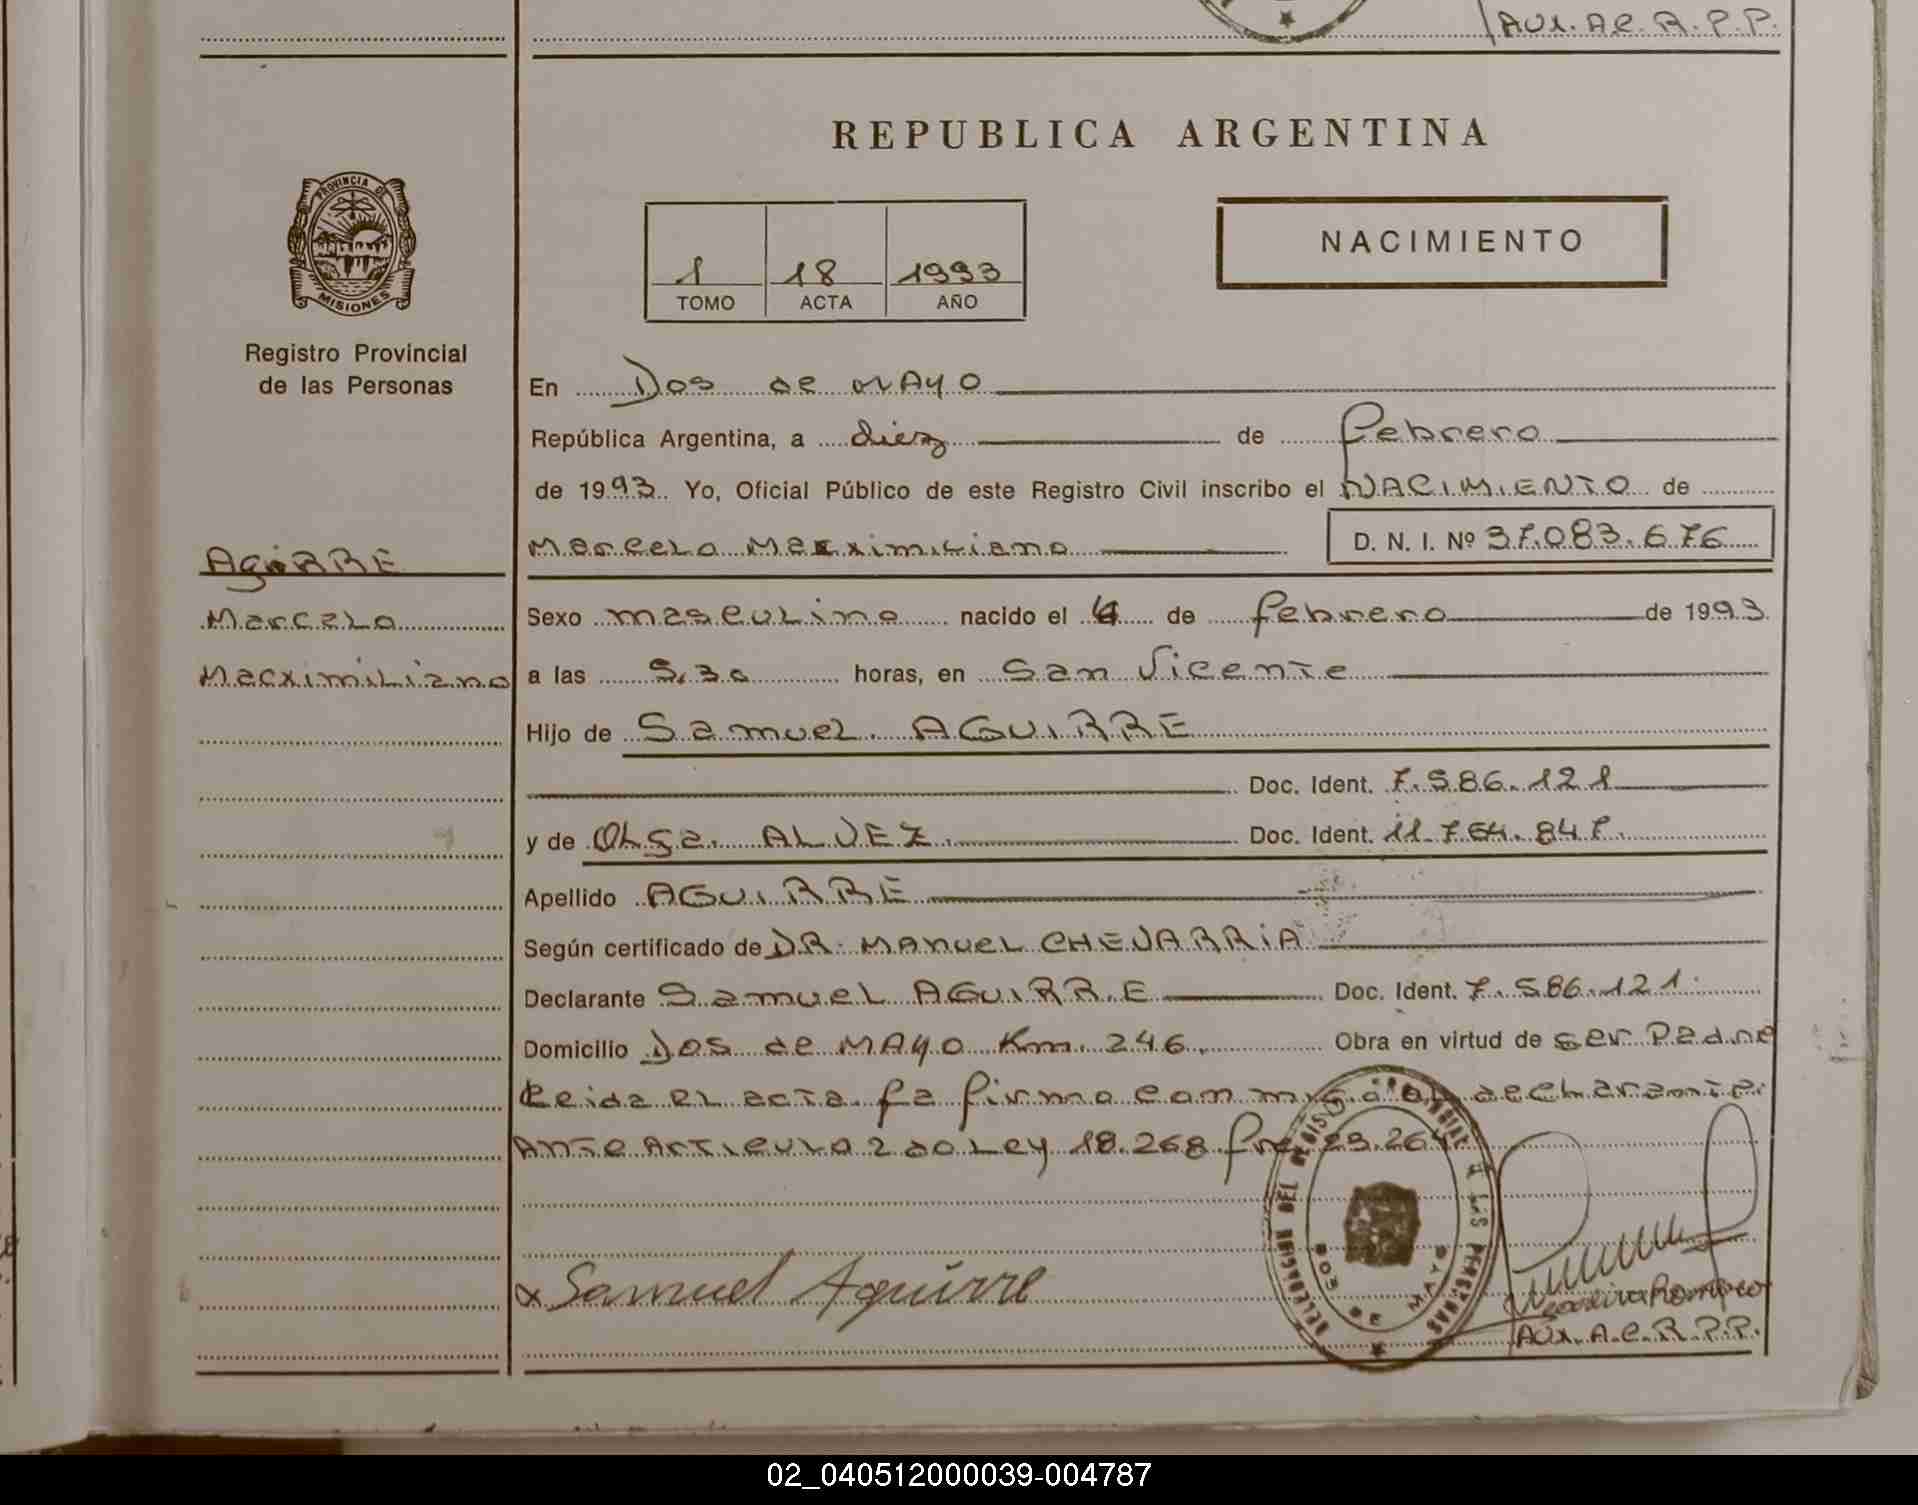 Aux. A.C. R.P.P.
REPUBLICA ARGENTINA
PROVINCIA DE
MISIONES
Registro Provincial
de las Personas
1 18 1993
TOMO ACTA AÑO
NACIMIENTO
En Dos de MAYO
República Argentina, a diez de febrero
de 1993. Yo, Oficial Público de este Registro Civil inscribo el NACIMIENTO de
Marcelo Macximiliano D. N. I. Nº 37.083.676
AGiRRE
Marcelo
Macximiliano
Sexo masculino nacido el 4 de febrero de 1993
a las 5,30 horas, en San Vicente
Hijo de Samuel AGUIRRE
Doc. Ident. 7.586.121
y de Olga ALVEZ Doc. Ident. 11.764.847
Apellido AGUIRRE
Según certificado de DR. MANUEL CHEVARRIA
Declarante Samuel AGUIRRE Doc. Ident. 7.586.121
Domicilio Dos de MAYO Km. 246. Obra en virtud de ser Padre
Leida el acta fa firmo conmigo el declarante
Ante Articulo 2do Ley 18.268 fre 23.264
DELEGACION DEL REGISTRO PROVINCIAL DE LAS PERSONAS
DOS DE MAYO
x Samuel Aguirre
Aux. A.C. R.P.P.
02_040512000039-004787